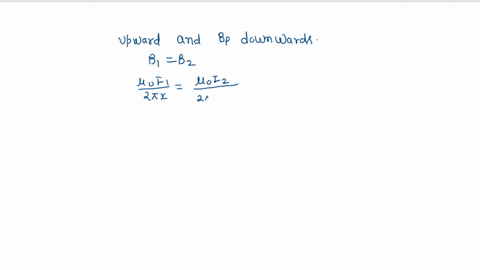 upward and Bp downwards.
B₁ = B₂
μ₀I₁/2πx = μ₀I₂/2